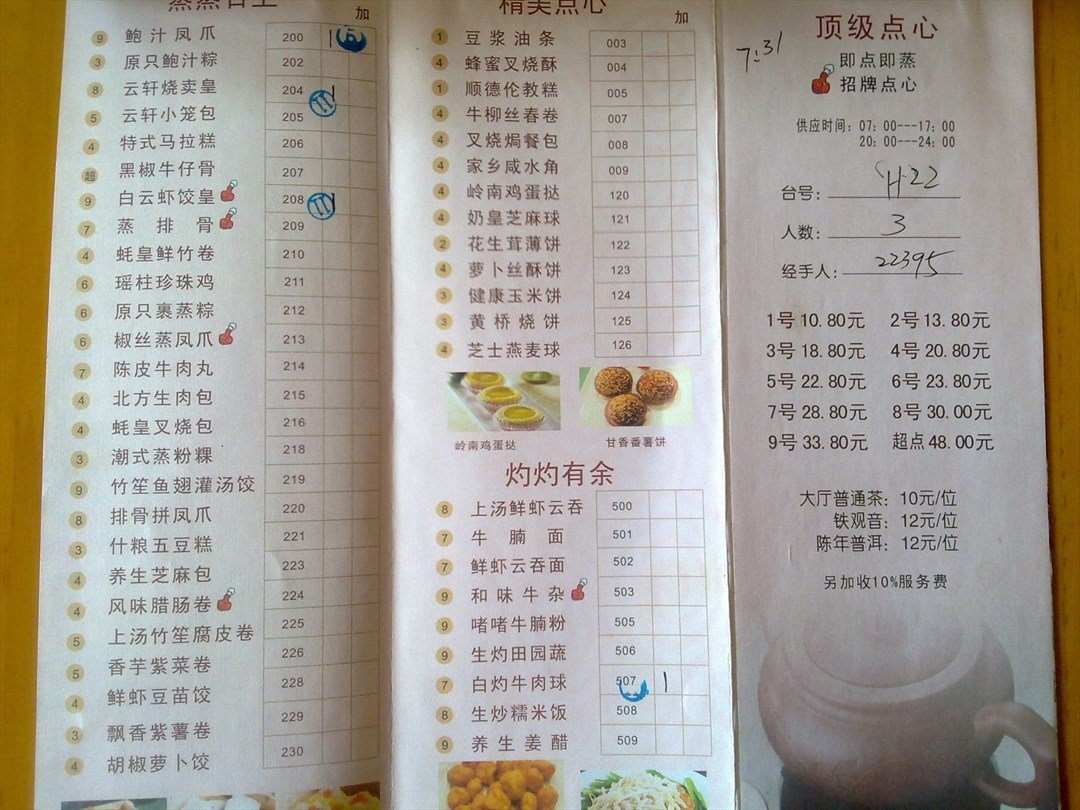 蒸蒸日上
加
9 鲍汁凤爪 200 1
3 原只鲍汁粽 202
8 云轩烧卖皇 204 1
5 云轩小笼包 205
4 特式马拉糕 206
超 黑椒牛仔骨 207
9 白云虾饺皇 208 1
7 蒸排骨 209
4 蚝皇鲜竹卷 210
6 瑶柱珍珠鸡 211
6 原只裹蒸粽 212
6 椒丝蒸凤爪 213
7 陈皮牛肉丸 214
4 北方生肉包 215
4 蚝皇叉烧包 216
3 潮式蒸粉粿 218
9 竹笙鱼翅灌汤饺 219
8 排骨拼凤爪 220
3 什粮五豆糕 221
4 养生芝麻包 223
4 风味腊肠卷 224
5 上汤竹笙腐皮卷 225
5 香芋紫菜卷 226
4 鲜虾豆苗饺 228
3 飘香紫薯卷 229
4 胡椒萝卜饺 230
精美点心
加
1 豆浆油条 003
4 蜂蜜叉烧酥 004
1 顺德伦教糕 005
4 牛柳丝春卷 007
4 叉烧焗餐包 008
4 家乡咸水角 009
4 岭南鸡蛋挞 120
4 奶皇芝麻球 121
2 花生茸薄饼 122
4 萝卜丝酥饼 123
3 健康玉米饼 124
3 黄桥烧饼 125
4 芝士燕麦球 126
岭南鸡蛋挞
甘香番薯饼
灼灼有余
8 上汤鲜虾云吞 500
7 牛腩面 501
7 鲜虾云吞面 502
9 和味牛杂 503
9 啫啫牛腩粉 505
9 生灼田园蔬 506
7 白灼牛肉球 507 1
8 生炒糯米饭 508
9 养生姜醋 509
顶级点心
7:31
即点即蒸
招牌点心
供应时间：07：00---17：00
20：00---24：00
台号：H22
人数：3
经手人：22395
1号10.80元 2号13.80元
3号18.80元 4号20.80元
5号22.80元 6号23.80元
7号28.80元 8号30.00元
9号33.80元 超点48.00元
大厅普通茶：10元/位
铁观音：12元/位
陈年普洱：12元/位
另加收10%服务费